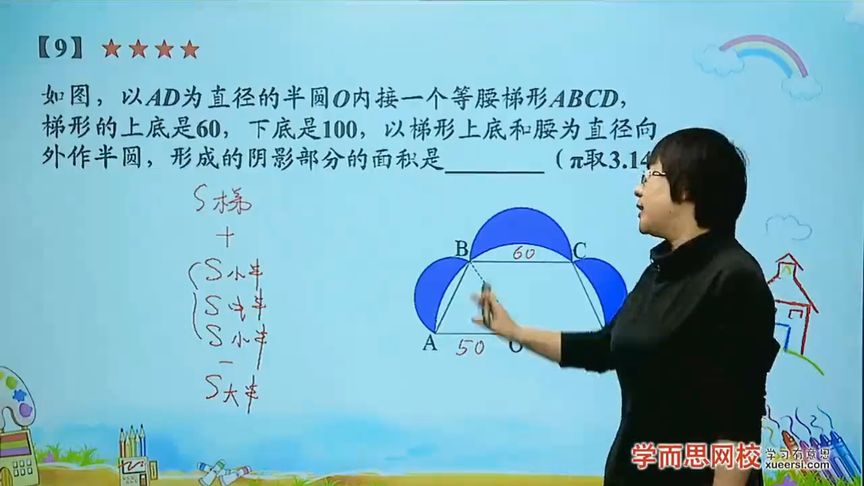 【9】★★★★
如图，以AD为直径的半圆O内接一个等腰梯形ABCD，
梯形的上底是60，下底是100，以梯形上底和腰为直径向
外作半圆，形成的阴影部分的面积是________（π取3.14
S梯
+
S小半
S中半
S小半
−
S大半
B
60
C
A
50
学而思网校
学习有意思
xueersi.com